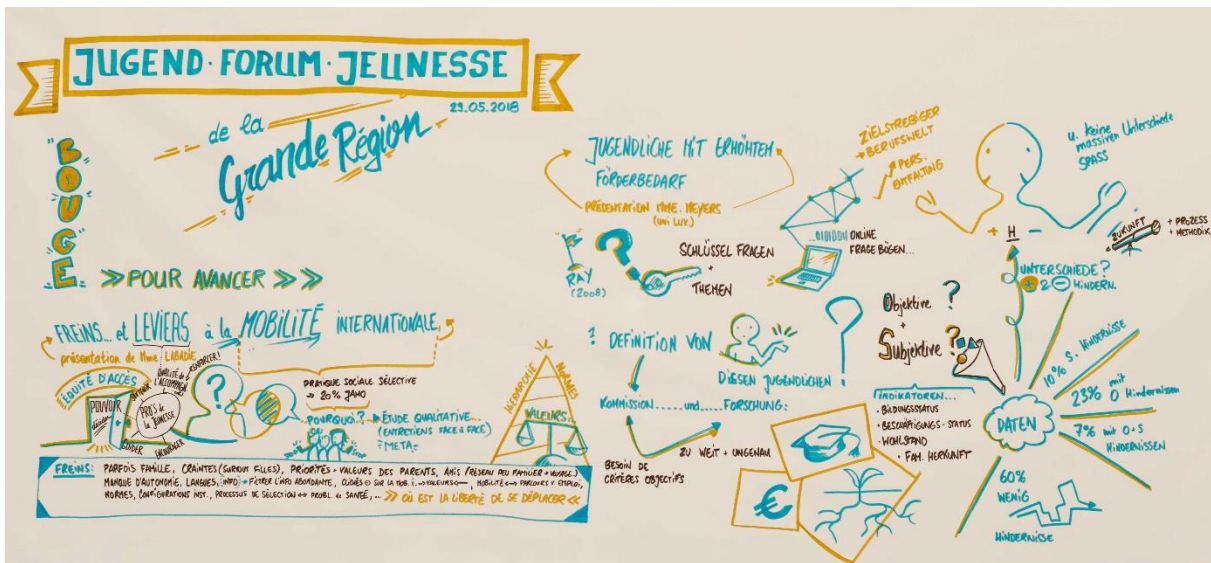 JUGEND · FORUM · JEUNESSE
29.05.2018
de la
Grande Région
BOUGE
>> POUR AVANCER >>>
FREINS... et LEVIERS à la MOBILITÉ INTERNATIONALE
présentation de Mme LABADIE
ÉQUITÉ D'ACCÈS
POUVOIR
décider
PROS de
la JEUNESSE
QUALITÉ de
L'ACCOMPAGN.
RENFORCER!
PRATIQUE SOCIALE SÉLECTIVE
→ 20% JAMO
POURQUOI?
ÉTUDE QUALITATIVE...
(ENTRETIENS FACE à FACE)
META-
HIERARCHIE
NORMES
VALEURS...
FREINS: PARFOIS FAMILLE, CRAINTES (SURTOUT FILLES), PRIORITÉS + VALEURS DES PARENTS, AMIS (RÉSEAU PEU FAMILIER + VOYAGE)
MANQUE D'AUTONOMIE, LANGUES, INFO → FILTRER L'INFO ABONDANTE, SUR LA MOB. I. → VALEURS ← , MOBILITÉ ↔ PARCOURS EMPLOI,
NORMES, CONFIGURATIONS INST., PROCESSUS DE SÉLECTION ↔ PROBL. SANTÉ, ... >> OÙ EST LA LIBERTÉ DE SE DÉPLACER <<
JUGENDLICHE MIT ERHÖHTEM
FÖRDERBEDARF
PRÉSENTATION MME. MEYERS
(UNI LUX.)
RAY
(2008)
?
SCHLÜSSEL FRAGEN
+
THEMEN
ZIELSTREBIGER
→ BERUFSWELT
→ PERS.
ENTFALTUNG
ONLINE
FRAGEBÖGEN...
u. keine
massiven Unterschiede
SPASS
+ H -
ZUKUNFT
+ PROZESS
+ METHODIK
UNTERSCHIEDE?
HINDERN.
? DEFINITION VON
DIESEN JUGENDLICHEN
?
KOMMISSION......und.....FORSCHUNG:
BESOIN DE
CRITÈRES OBJECTIFS
ZU WEIT + UNGENAU
Objektive ?
+
Subjektive ?
INDIKATOREN...
· BILDUNGSSTATUS
· BESCHÄFTIGUNGS-STATUS
· WOHLSTAND
· FAM. HERKUNFT
€
DATEN
10% S. HINDERNISSE
23% mit
O Hindernissen
7% mit O+S
HINDERNISSEN
60%
WENIG
HINDERNISSE